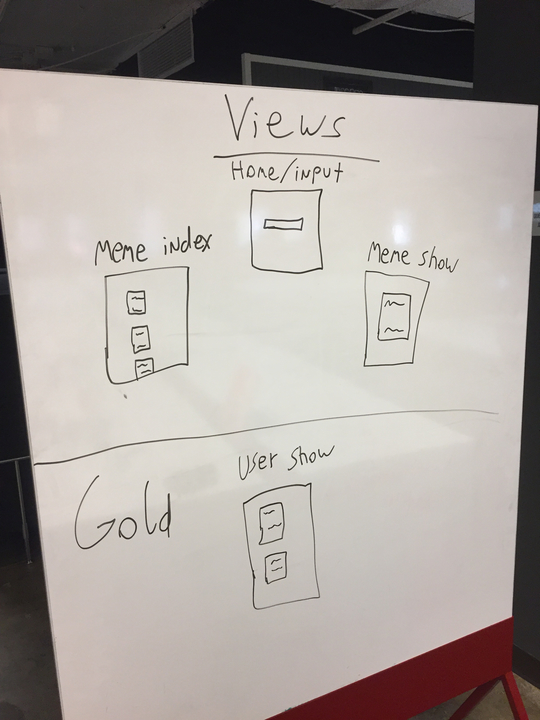 Views
Home/input
Meme index
Meme show
User show
Gold